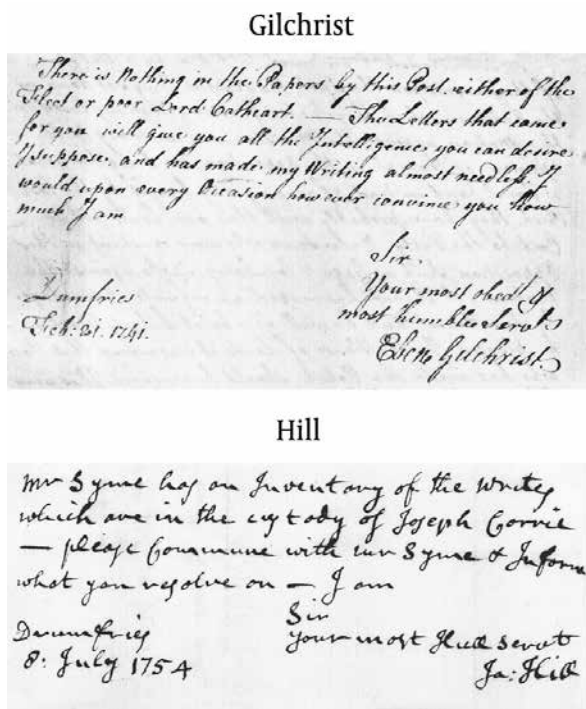 Gilchrist
There is Nothing in the Papers by this Post either of the
Fleet or poor Lord Cathcart. — The Letters that came
for you will give you all the Intelligence you can desire
I suppose, and has made my Writing almost needless. I
would upon every Occasion however convince you how
much I am
Sir.
Your most obed.t &
most humble Servt
Dumfries
Feb: 21. 1741.
Eben Gilchrist.
Hill
Mr Syme has an Inventory of the Writes
which are in the custody of Joseph Corrie
— please Commune with mr Syme & Inform
what you resolve on — I am
Sir
Dumfries
your most Hull servt
8: July 1754
Ja: Hill